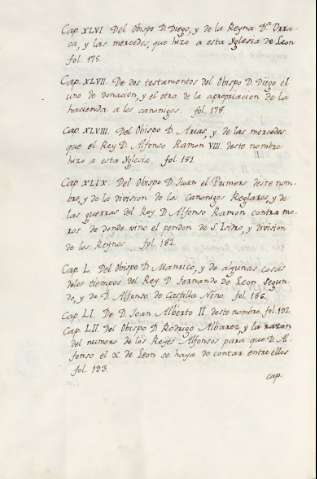 Cap. XLVI Del Obispo D. Diego, y de la Reyna Dª. Urra-
ca, y las mercedes, que hizo a esta Yglesia de Leon
fol. 175.
Cap. XLVII. De dos testamentos del Obispo D. Diego el
uno de donacion, y el otra de la apropiacion de la
hacienda a los canonigos. fol. 178.
Cap. XLVIII. Del Obispo D. Arias, y de las mercedes
que el Rey D. Alfonso Ramon VIII. deste nombre
hizo a esta Yglesia. fol. 181.
Cap. XLIX. Del Obispo D. Juan el Primero deste nom-
bre, y de la division de los Canonigos Reglares, y de
las guerras del Rey D. Alfonso Ramon contra mo-
ros de donde vino el pendon de Sn. Isidro, y division
de los Reynos. fol. 182.
Cap. L. Del Obispo D. Manrico, y de algunas cosas
delos tiempos del Rey D. Fernando de Leon segun-
do, y de D. Alfonso de Castilla Niño. fol. 186.
Cap. LI. De D. Juan Alberto II. deste nombre, fol. 192.
Cap. LII. del Obispo D. Rodrigo Albarez, y la razon
del numero de los Reyes Alfonsos para que D. Al-
fonso el X. de Leon se haya de contar entre ellos
fol. 193.
cap.